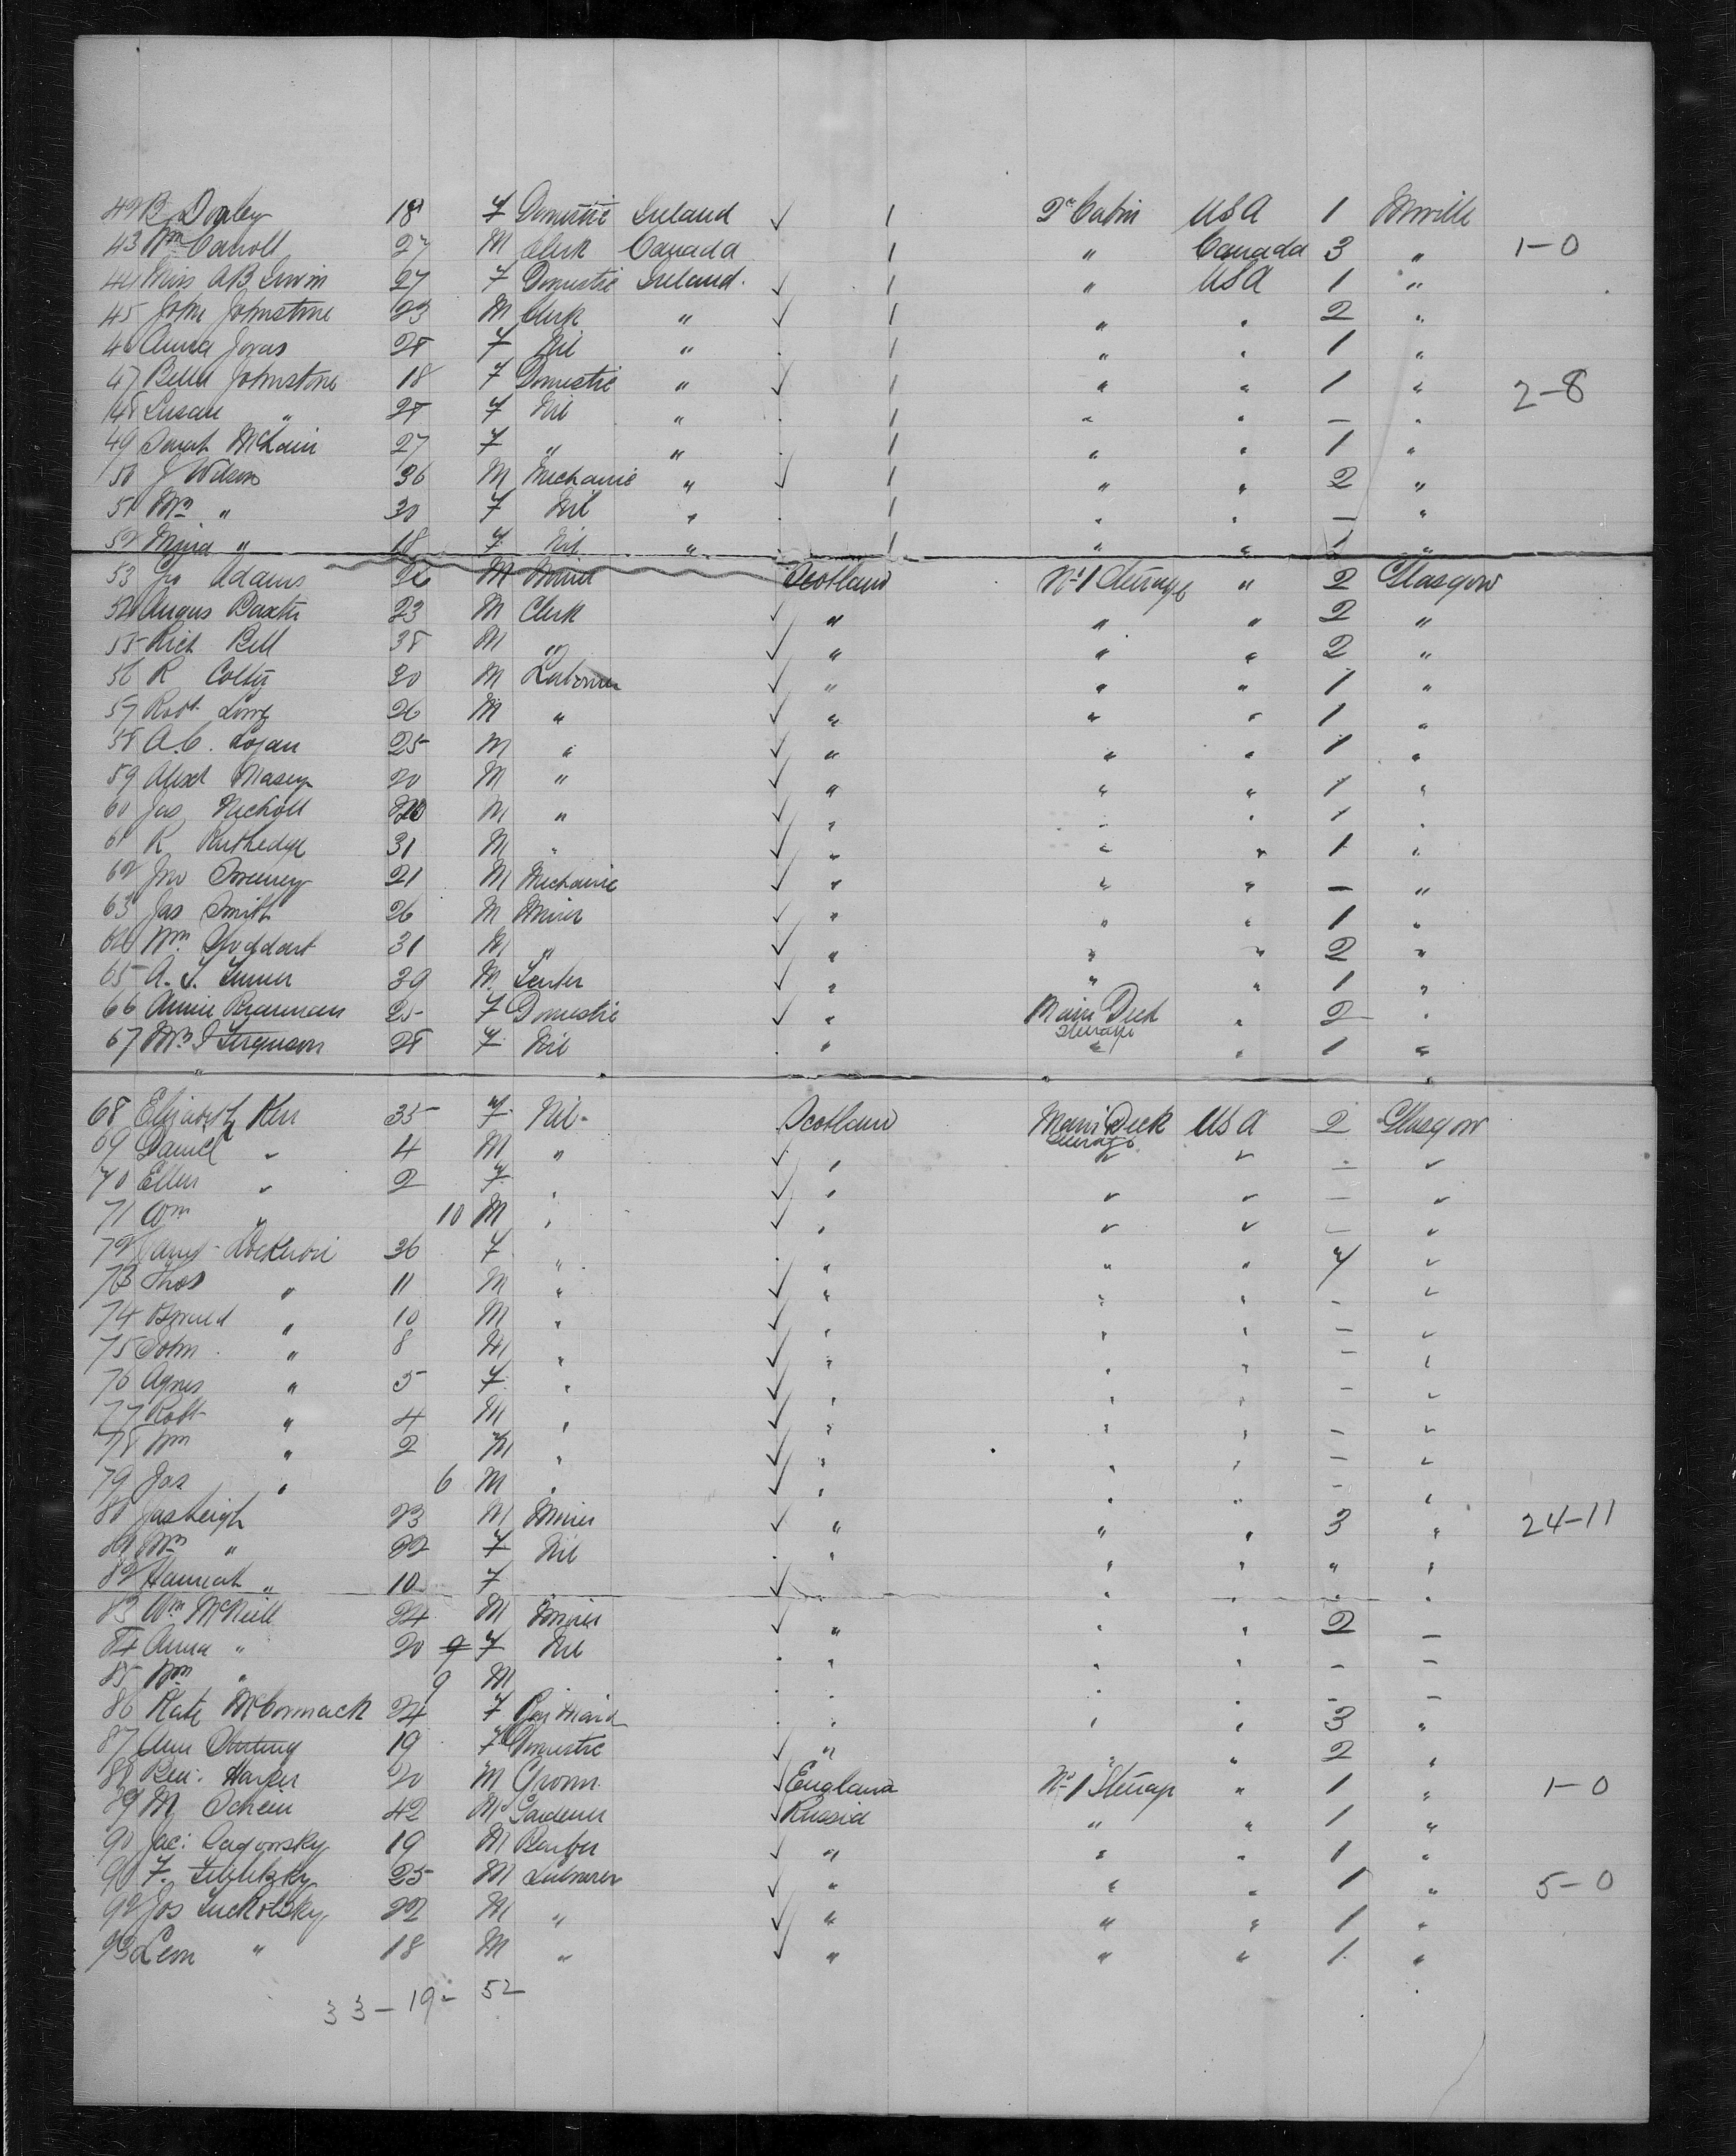 42 B Donley 18 F Domestic Ireland ✓ 1 2d Cabin USA 1 Mville
43 Wm Carroll 27 M Clerk Canada 1 " Canada 3 " 1-0
44 Miss A B Irwin 27 F Domestic Ireland ✓ 1 " USA 1 "
45 John Johnstone 23 M Clerk " ✓ 1 " " 2 "
46 Anna Jonas 28 F Nil " 1 " " 1 "
47 Bella Johnstone 18 F Domestic " ✓ 1 " " 1 " 2-8
48 Susan " 28 F Nil " 1 " " — "
49 Sarah McLain 27 F " " 1 " " 1 "
50 J Wilson 36 M Mechanic " ✓ 1 " " 2 "
51 Mrs " 30 F Nil " 1 " " — "
52 " 18 F Nil " 1 " " 1 "
53 Jno Adams 26 M Miner Scotland No 1 Steerage " 2 Glasgow
54 Angus Baxter 23 M Clerk ✓ " " " 2 "
55 Rich Bell 38 M " ✓ " " " 2 "
56 R 20 M Labourer ✓ " " " 1 "
57 Robt 26 M " ✓ " " " 1 "
58 A.C. Logan 25 M " ✓ " " " 1 "
59 Alexd 20 M " ✓ " " " 1 "
60 Jas Nicholl 20 M " ✓ " " " 1 "
61 R Rutledge 31 M " ✓ " " " 1 "
62 Jno Sweeney 21 M Mechanic ✓ " " " — "
63 Jas Smith 26 M Miner ✓ " " " 1 "
64 Wm Stoddart 31 M " ✓ " " " 2 "
65 A. J. Turner 39 M ✓ " " " 1 "
66 Annie 25 F Domestic ✓ " Main Deck Steerage " 2 "
67 Mrs Ferguson 28 F Nil " " " 1 "
68 Elizabeth Kerr 35 F Nil Scotland Main Deck Steerage USA 2 Glasgow
69 Daniel " 4 M " ✓ " " " — "
70 Ellen " 2 F " ✓ " " " — "
71 Wm " 10 M " ✓ " " " — "
72 Lockerbie 36 F " " " " 7 "
73 Thos " 11 M " ✓ " " " — "
74 " 10 M " ✓ " " " — "
75 John " 8 M " ✓ " " " — "
76 Agnes " 5 F " ✓ " " " — "
77 Robt " 4 M " ✓ " " " — "
78 Wm " 2 M " ✓ " " " — "
79 Jas " 6 M " ✓ " " " — "
80 Jas Leigh 23 M Miner ✓ " " " 3 " 24-11
81 Mrs " 22 F Nil " " " " "
82 Hannah " 10 F ✓ " " " " "
83 Wm McNeill 24 M Miner ✓ " " " 2 —
84 Anna " 20 F Nil " " " — —
85 Wm " 9 M " " " — —
86 Kate McCormack 24 F " " " 3 "
87 Ann Stirling 19 F Domestic ✓ " " " 2 "
88 Ben: Harper 20 M Groom ✓ England No 1 Steerage " 1 " 1-0
89 M Schein 42 M Gardener ✓ Russia " " 1 "
90 Jac: Cagowsky 19 M ✓ " " " 1 "
91 F. 25 M Labourer ✓ " " " 1 " 5-0
92 Jos 22 M " ✓ " " " 1 "
93 Leon " 18 M " ✓ " " " 1 "
33-19-52